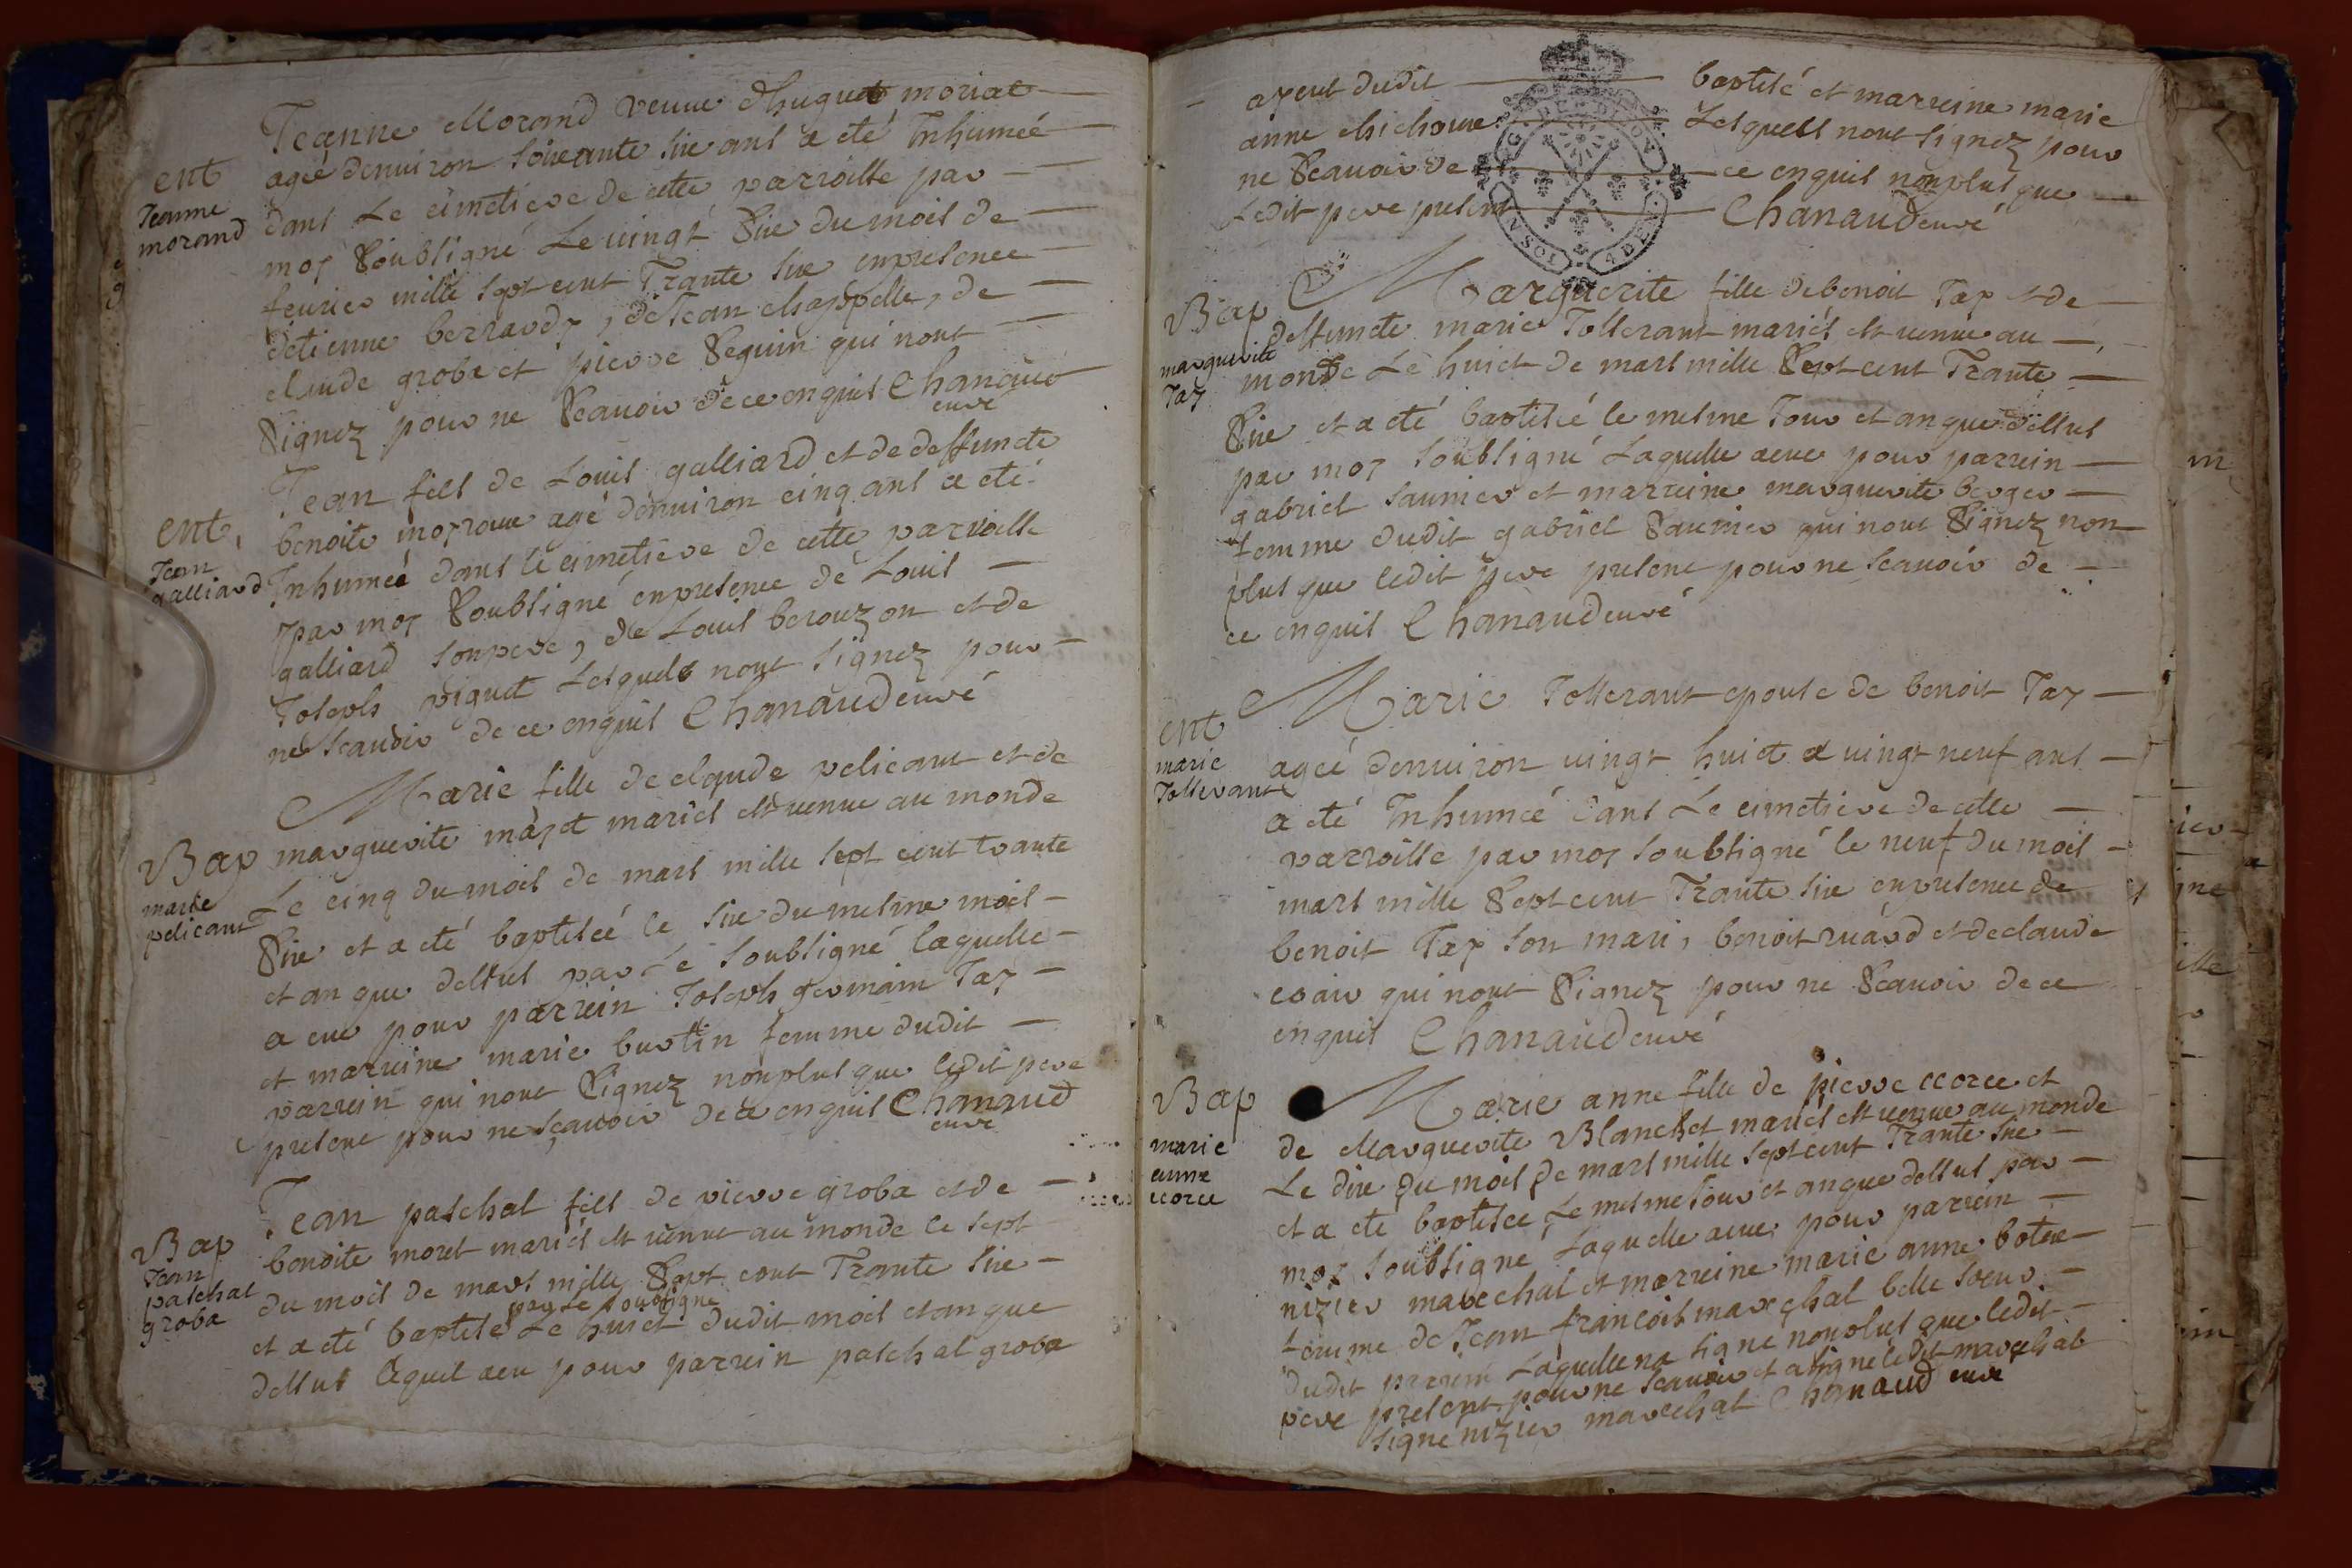 Jeanne Morand veuue dhuguet moriat
ent
agée denuiron soixante six ans a eté Inhumée
Jeanne
morand
dans Le cimetiere de cette parroisse par
moy Soubsigné Le uingt Six du mois de
feurier mille sept cent Trante six enpresence
detienne berraudy, de Jean chappelle, de
claude groba et pierre Seguin qui nont
Signez pour ne Scauoir de ce enquis Chanaud
curé
Jean fils de Louis galliard et de deffuncte
ent
benoite moyroux agé denuiron cinq ans a eté
Jean
galliard
Inhumeé dans le cimetiere de cette parroisse
par moy Soubsigné enpresence de Louis
galliard son pere, de Louis berouzon et de
Joseph piguet Lesquels nont signez pour
ne scauoir de ce enquis Chanaud curé
Marie fille de claude pelicant et de
Bap
marguerite mayet mariés est uenue au monde
marie
pelicant
Le cinq du mois de mars mille sept cent trante
Six et a eté baptiseé le six du mesme mois
et an que dessus par Le soubsigné laquelle
a eue pour parrein Joseph germain Tay
et marreine marie burtin femme dudit
parrein qui nont Signez nonplus que ledit pere
present pour ne sçauoir de ce enquis Chanaud
curé
Jean paschal fils de pierre groba et de
Bap
Jean
paschal
groba
benoite moret mariés est uenue au monde le sept
du mois de mars mille Sept cent Trante six
par Le soubsigne
et a eté baptisé Le huict dudit mois et an que
dessus Lequel a eu pour parrein paschal groba
ayeul dudit baptisé et marreine marie
anne chichoux Lesquels nont signez pour
ne Scauoir de ce enquis nonplus que
Ledit pere present Chanaud curé
Marguerite fille de benoit Tay et de
Bap
marguerite
Tay
deffuncte marie Tollerant mariés est uenue au
monde Le huict de mars mille Sept cent Trante
Six et a eté baptiseé le mesme Jour et an que dessus
par moy soubsigné Laquelle a eue pour parrein
gabriel saunier et marreine marguerite berger
femme dudit gabriel Saunier qui nont Signez non
plus que ledit pere present pour ne scauoir de
ce enquis Chanaud curé
Marie Tollerant epouse de benoit Tay
ent
marie
Tollerant
ageé denuiron uingt huict a uingt neuf ans
a eté Inhumeé dans Le cimetiere de cette
parroisse par moy soubsigné le neuf du mois
mars mille Sept cent Trante six enpresence de
benoit Tay son mari, benoit ruard et de claude
qui nont Signez pour ne Scauoir de ce
enquis Chanaud curé
Marie anne fille de pierre ecorce et
Bap
marie
anne
ecorce
de Marguerite Blanchet mariés est uenue au monde
Le dix du mois de mars mille sept cent Trante six
et a eté baptisée Le mesme Jour et an que dessus par
moy soubsigne Laquelle a eue pour parrein
nizier marechal et marreine marie anne
femme de Jean francois marechal belle soeur
dudit parrein Laquelle na signe nonplus que ledit
pere present pour ne scauoir et a signé ledit marechal
signé nizier marechal Chanaud curé